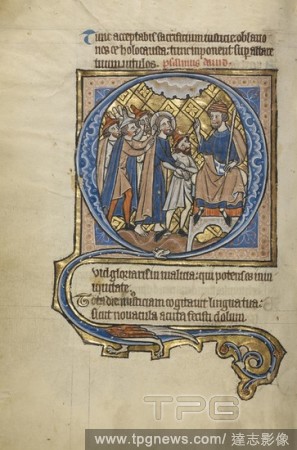 Tunc acceptabis sacrificium iusticie oblatio
nes et holocausta: tunc imponent sup altare
tuum uitulos. psalmus dauid.
uid gloriaris in malicia: qui potens es in in
iquitate.
Tota die iniusticiam cogitauit lingua tua:
sicut nouacula acuta fecisti dolum.
TPG
www.tpgnews.com / 達志影像